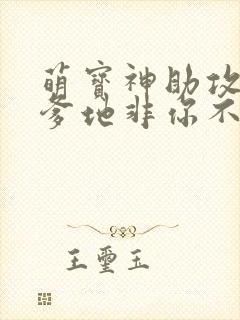 萌寳神助攻
爹地非你不
王璽玉